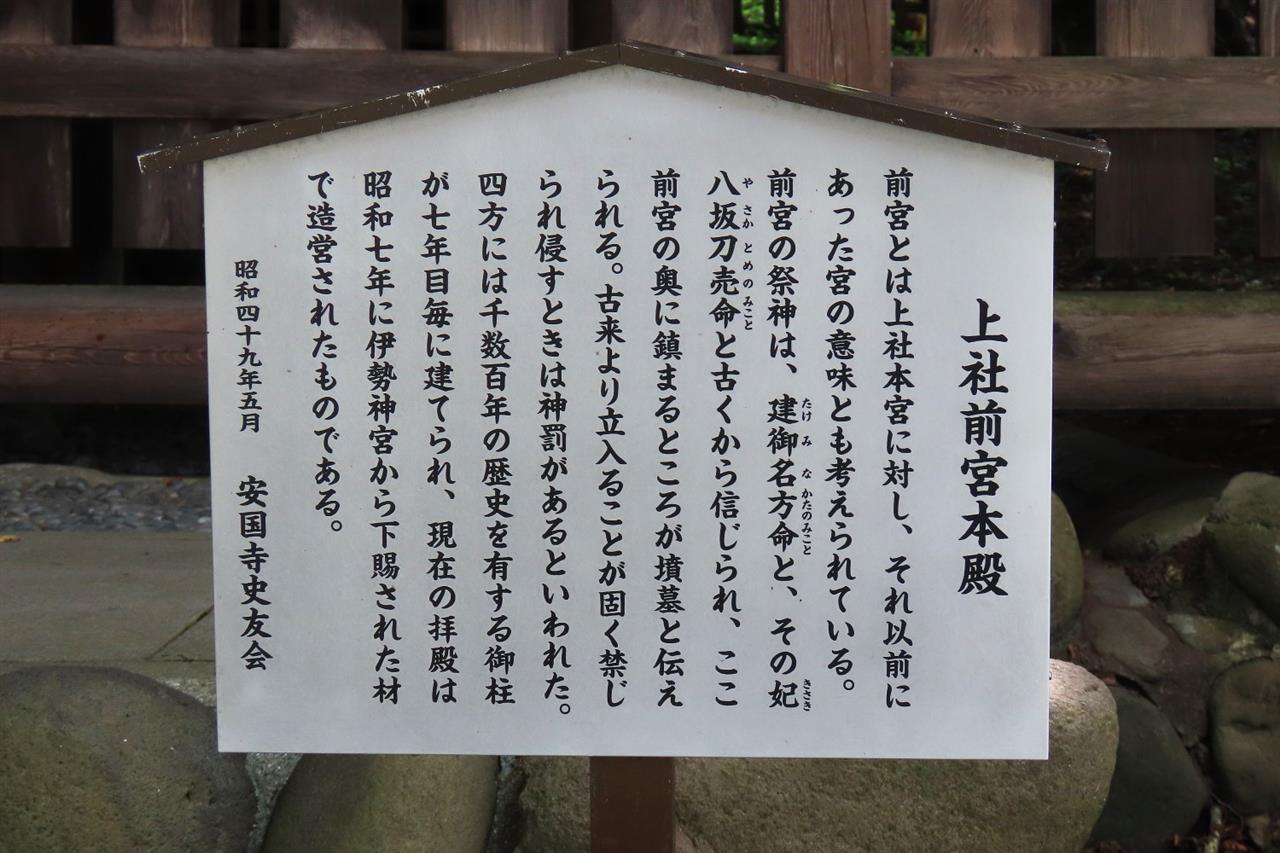 上社前宮本殿
前宮とは上社本宮に対し、それ以前に
あった宮の意味とも考えられている。
前宮の祭神は、建御名方命と、その妃
たけ み な かたのみこと きさき
八坂刀売命と古くから信じられ、ここ
や さか と め のみこと
前宮の奥に鎮まるところが墳墓と伝え
られる。古来より立入ることが固く禁じ
られ侵すときは神罰があるといわれた。
四方には千数百年の歴史を有する御柱
が七年目毎に建てられ、現在の拝殿は
昭和七年に伊勢神宮から下賜された材
で造営されたものである。
昭和四十九年五月 安国寺史友会